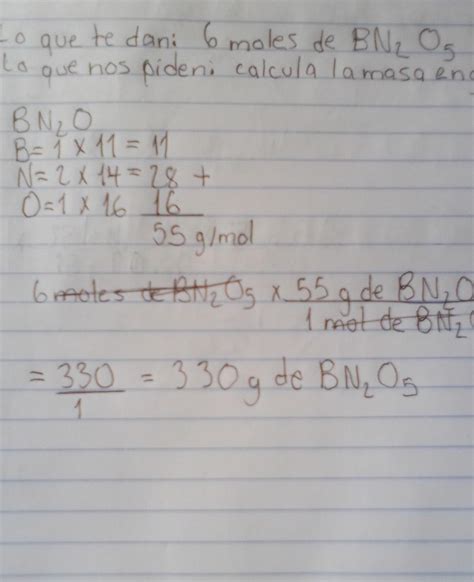 Lo que te dan: 6 moles de BN₂O₅
Lo que nos piden: calcula la masa en g
BN₂O
B=1 x 11 = 11
N=2 x 14 = 28 +
O=1 x 16 16
55 g/mol
6 moles de BN₂O₅ x 55 g de BN₂O
1 mol de BN₂
= 330 = 330g de BN₂O₅
1